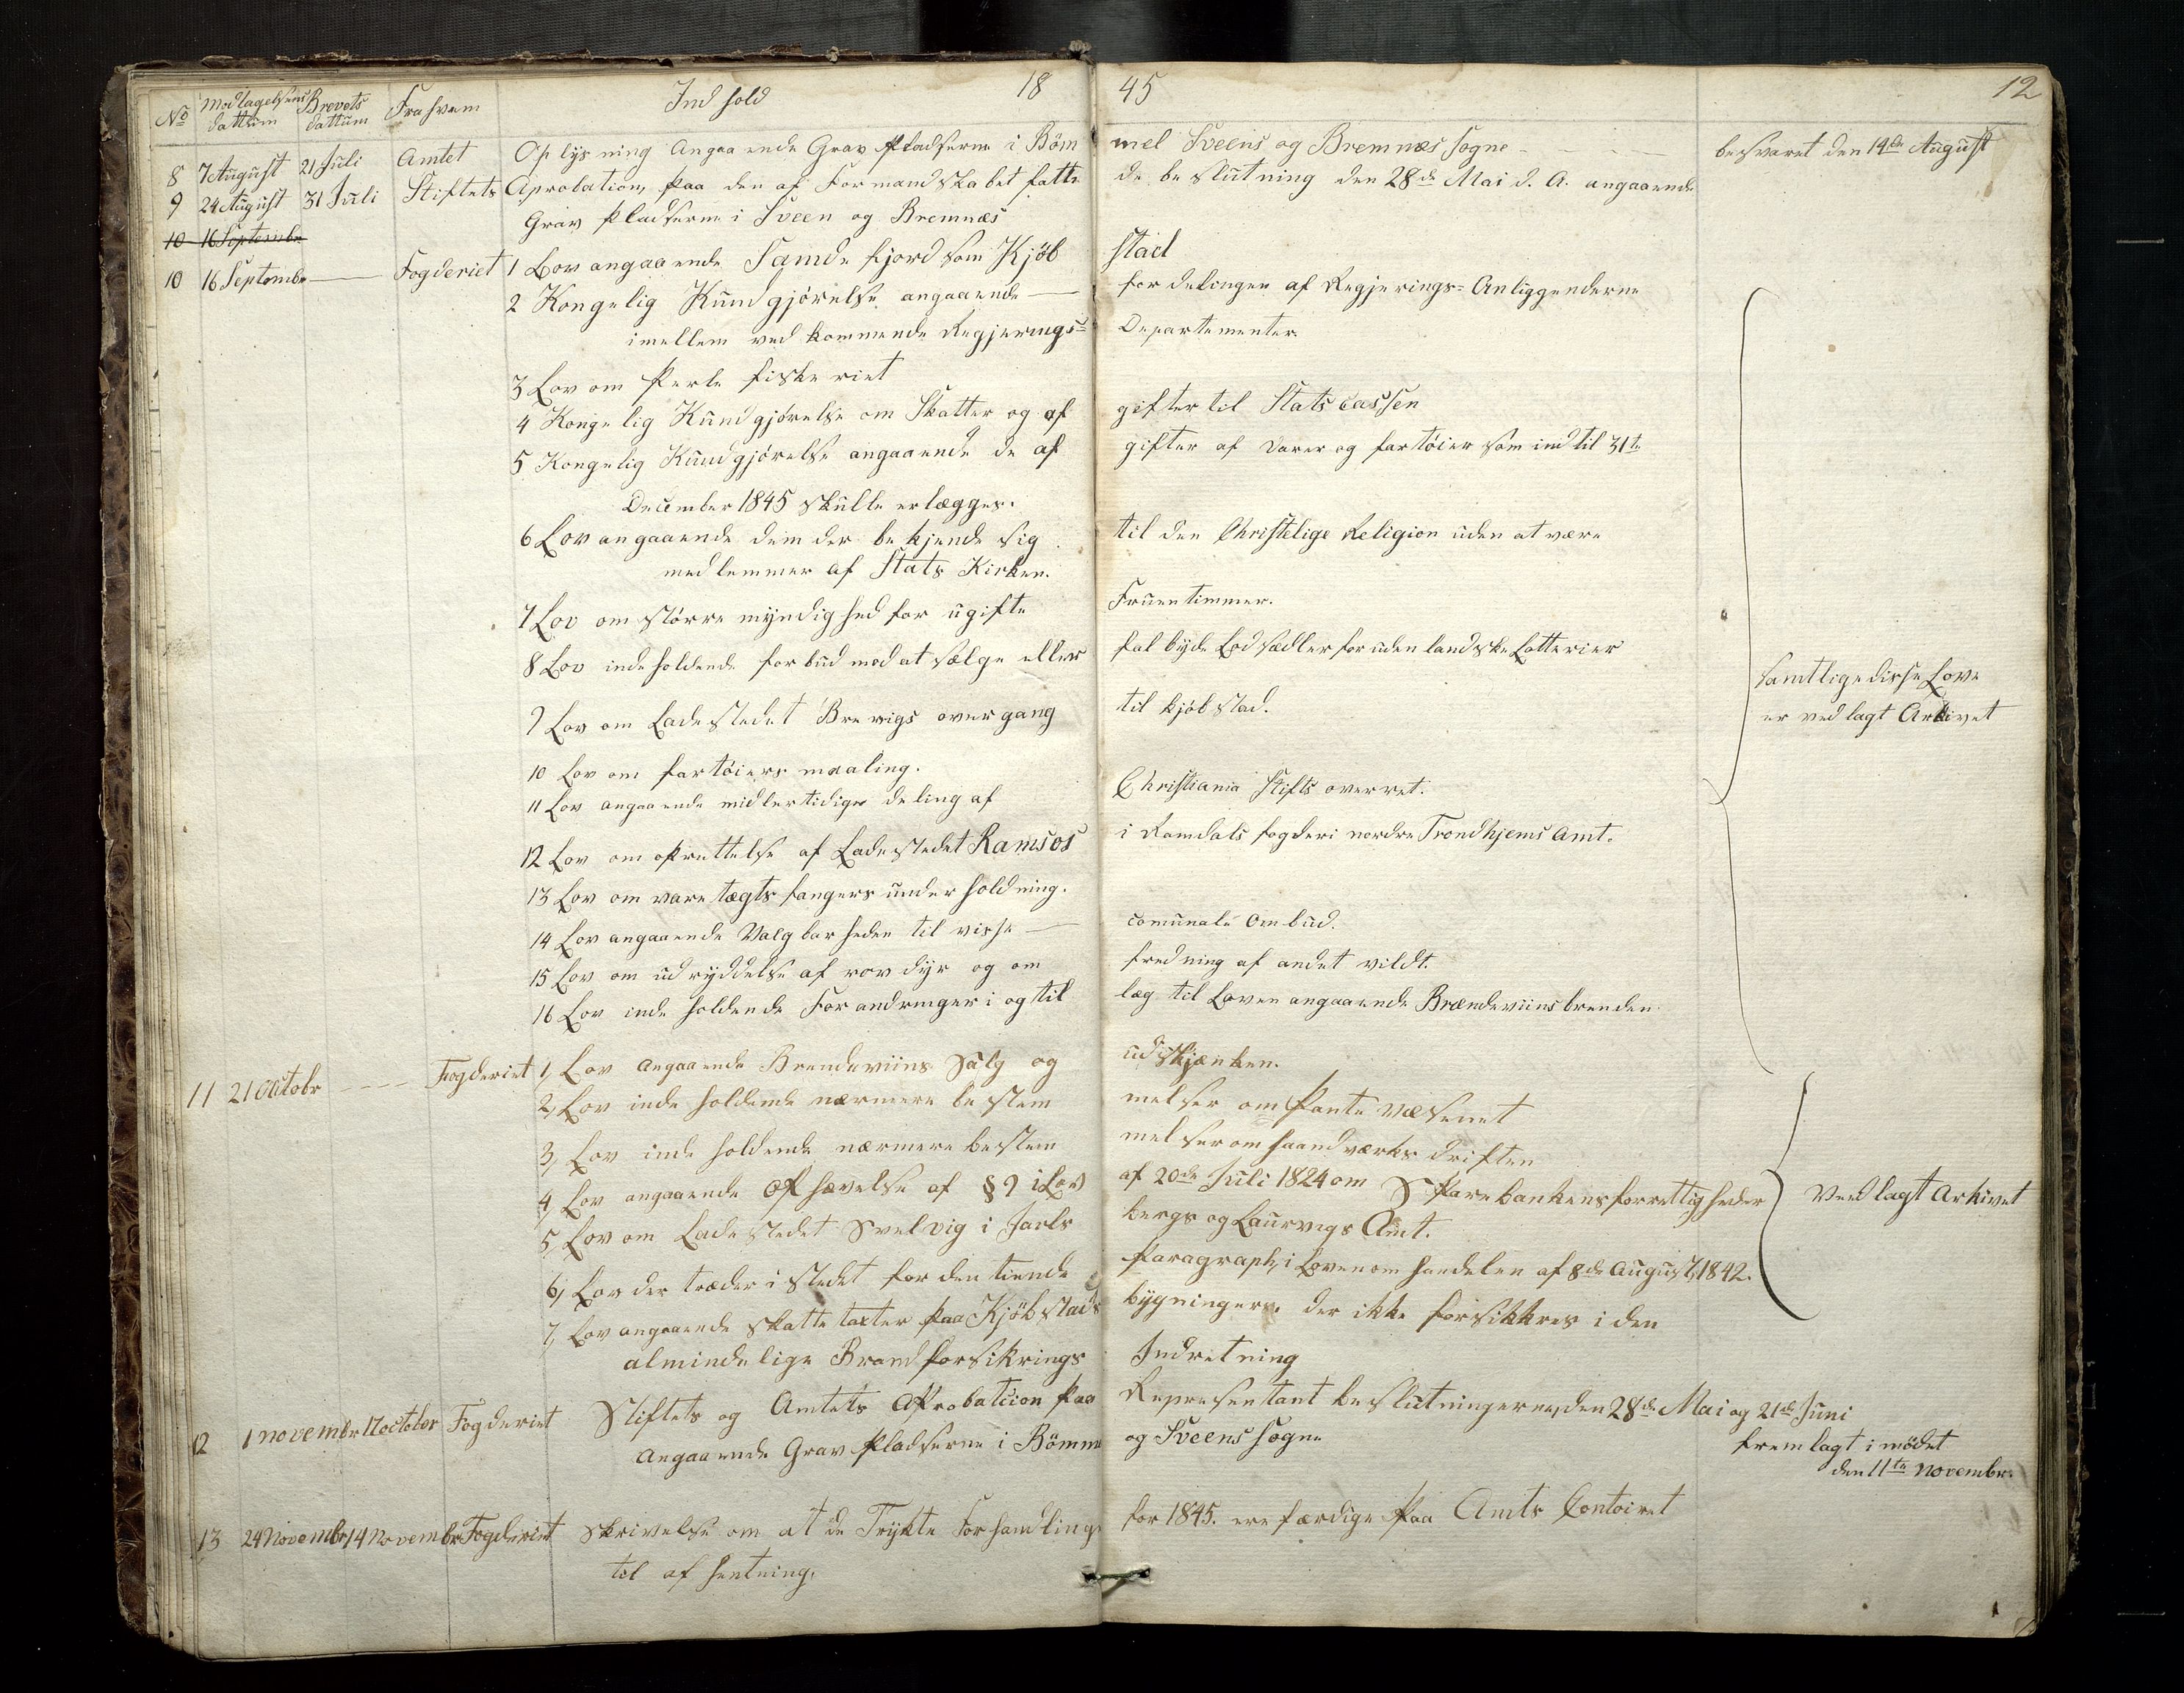 No Modtagelsens dattum Brevets dattum Fra hvem Ind hold 18 45 12
8 7 August 21 Juli Amtet Oplysning Angaaende Gravpladserne i Böm mel Sveens og Bremnæs sogne besvaret den 14de August
9 24 August 31 Juli Stiftets Aprobation, paa den af Formandskabet fatte de beslutning den 28de Mai d. A. angaaende
Gravpladserne i Sveen og Bremnæs
10 16 Septembr
10 16 Septembr Fogderiet 1 Lov angaaende Sandefjord som Kjöb stad
2 Kongelig Kundgjörelse angaaende fordelingen af Regjerings=Anliggenderne
imellem vedkommende Regjerings= Departementer.
3 Lov om Perle fiskeriet
4 Kongelig Kundgjörelse om Skatter og af gifter til Stats Cassen
5 Kongelig Kundgjörelse angaaende de af gifter af Varer og fartöier som indtil 31te
December 1845 skulle erlægges.
6 Lov angaaende dem der bekjende sig til den Christelige Religion uden at være
medlemmer af Stats Kirken.
7 Lov om större myndighed for ugifte Fruentimmer.
8 Lov indeholdende forbud mod at sælge eller falbyde Lodsædler for udenlandske Lotterier
samtlige disse Love
9 Lov om Ladestedet Brevigs overgang til kjöbstad.
er vedlagt Arkivet
10 Lov om fartöiers maaling.
11 Lov angaaende midlertidige deling af Christiania Stifts overret.
12 Lov om oprettelse af Ladestedet Ramsos i Namdals fogderi nordre Trondhjems Amt.
13 Lov om varetægts fangers underholdning.
14 Lov angaaende Valgbarheden til visse comunale Ombud.
15 Lov om udryddelse af rovdyr og om fredning af andet vildt.
16 Lov indeholdende Forandringer i og til læg til Loven angaaende Brændeviinsbrenden
11 21 October Fogderiet 1, Lov angaaende Brendeviins Salg og udskjænken.
2, Lov indeholdende nærmere bestem melser om Pantevæsenet
3, Lov indeholdende nærmere bestem melser om haandværks driften
4, Lov angaaende Ophævelse af § 9 i Lov af 20de Juli 1824 om Sparebankens forrettigheder Vedlagt Arkivet
5, Lov om Ladestedet Svelvig i Jarls bergs og Laurvigs Amt.
6, Lov der træder istedet for den tiende Paragraph, i Loven om handelen af 8de August, 1842.
7, Lov angaaende skattetaxter paa Kjöbstads bygninger, der ikke forsikkres i den
almindelige Brandforsikrings Indretning
12 1 novembr 17 october Fogderiet Stiftets og Amtets Aprobatcion paa Representant beslutningerne, den 28de Mai og 21de Juni
Angaaende Gravpladserne i Bömme og Sveens sogne fremlagt i mödet
den 11te Novembr.
13 24 Novembr 14 Novembr Fogderiet Skrivelse om at de Trykte Forhandling for 1845. ere færdige paa Amts Contoiret
til afhentning.